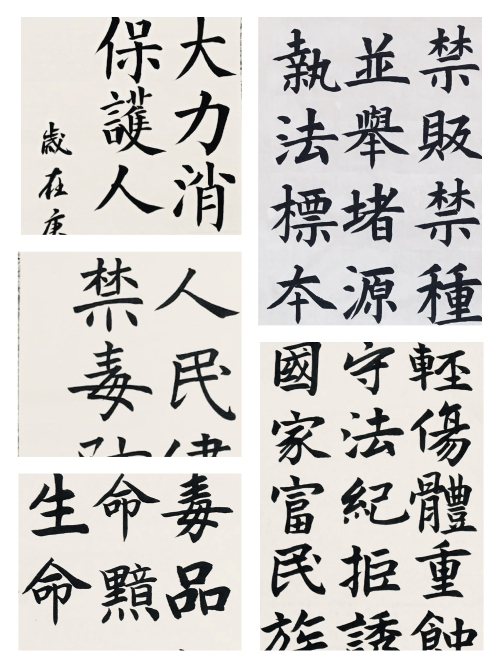 大力消
保護人
歲在庚
禁販禁種
並舉堵源
執法標本
人民
禁毒
毒品
命
生命
輕傷體重蝕
守法紀拒誘
國家富民族